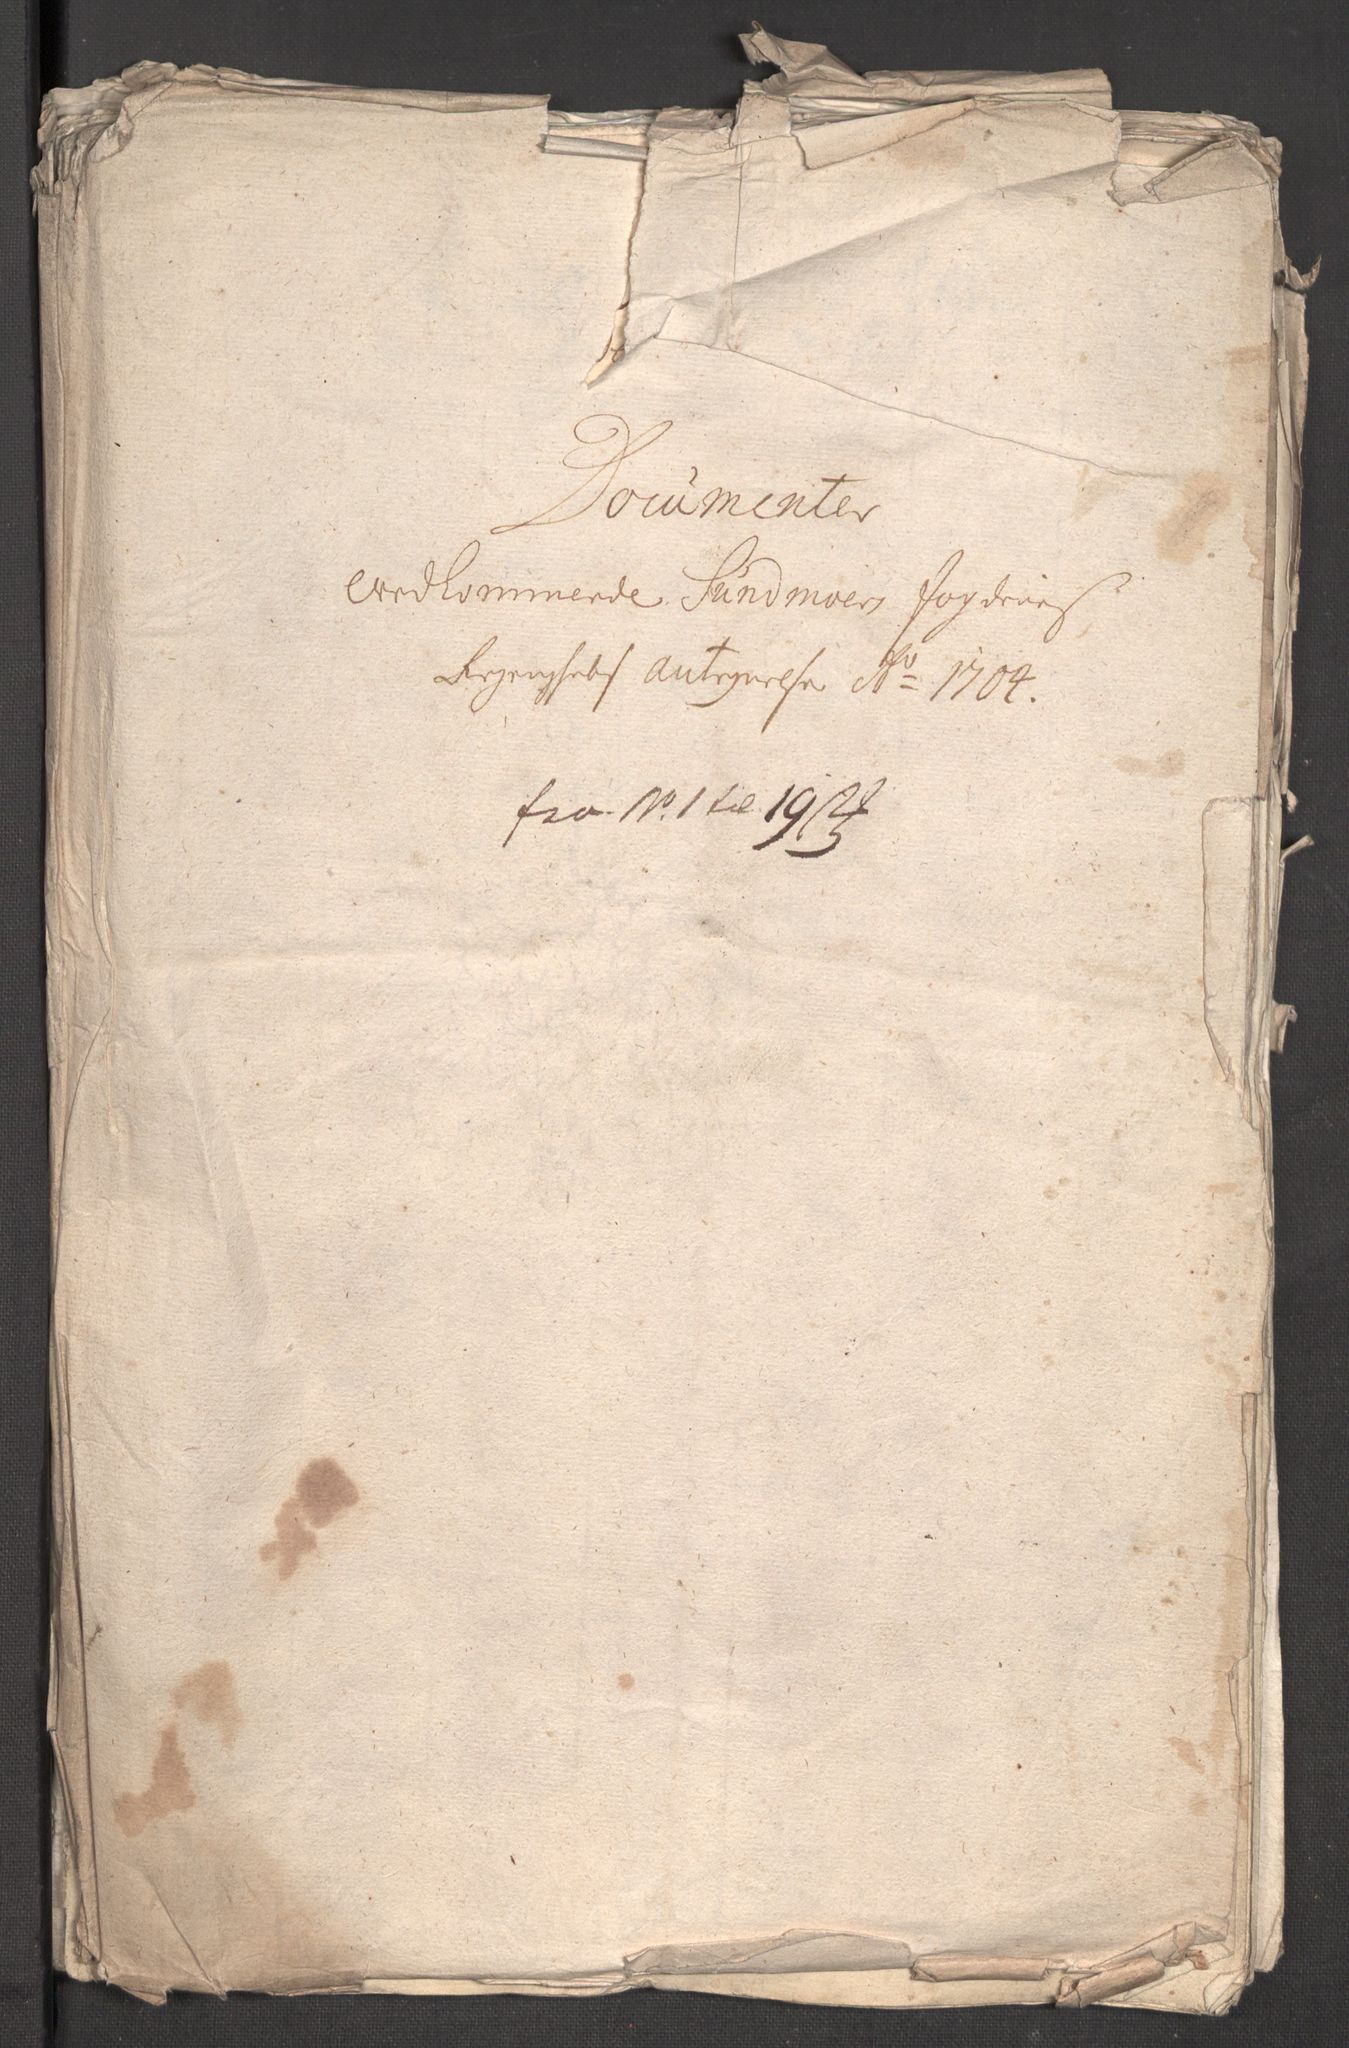 Documenter
Vedkommende Sundmoers fogderies
Regenschabs antegnelse No 1704.
fra No. 1 til 19